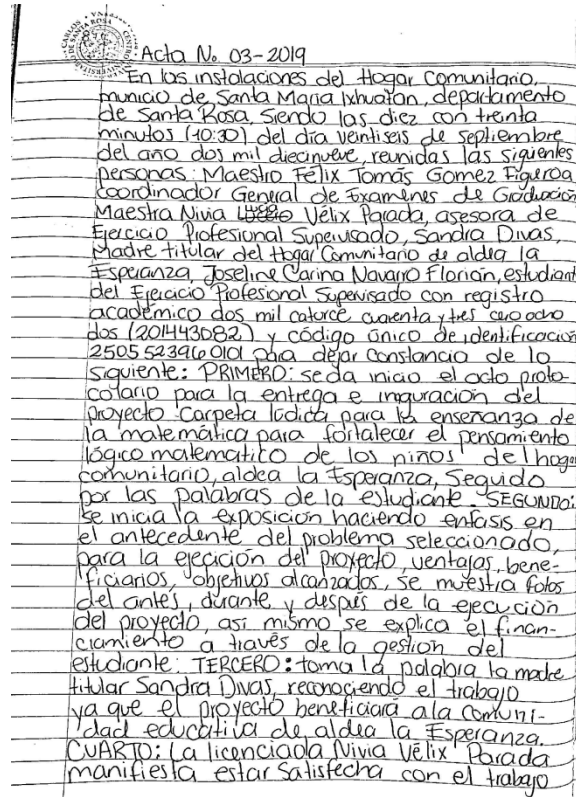 Acta No. 03-2019
En las instalaciones del Hogar Comunitario,
municio de Santa María Ixhuatán, departamento
de Santa Rosa, Siendo las diez con treinta
minutos (10:30) del día veintiseis de septiembre
del año dos mil diecinueve, reunidas las siguientes
personas: Maestro Félix Tomás Gomez Figeroa
coordinador General de Examenes de Graduación
Maestra Nivia Vélix Parada, asesora de
Ejercicio Profesional Supervisado, Sandra Divas,
Madre titular del Hogar Comunitario de aldea la
Esperanza, Joseline Carina Navarro Florián, estudiant
del Ejercicio Profesional Supervisado con registro
académico dos mil catorce cuarenta y tres cero ocho
dos (201443082) y código único de identificación
2505523960101 para dejar constancia de lo
siguiente: PRIMERO: se da inicio el acto proto-
colario para la entrega e inguración del
proyecto Carpeta lúdica para la enseñanza de
la matemática para fortalecer el pensamiento
lógico matematico de los niños del hogar
comunitario, aldea la Esperanza, Seguido
por las palabras de la estudiante. SEGUNDO:
se inicia la exposición haciendo enfasis en
el antecedente del problema seleccionado,
para la ejecición del proyecto, ventajas, bene-
ficiarios, objetivos alcanzados, se muestra fotos
del antes, durante y despúes de la ejecución
del proyecto, así mismo se explica el finan-
ciamiento a través de la gestión del
estudiante. TERCERO: toma la palabra la madre
titular Sandra Divas, reconociendo el trabajo
ya que el proyecto beneficiará a la comuni-
dad educativa de aldea la Esperanza.
CUARTO: La licenciada Nivia Vélix Parada
manifiesta estar Satisfecha con el trabajo